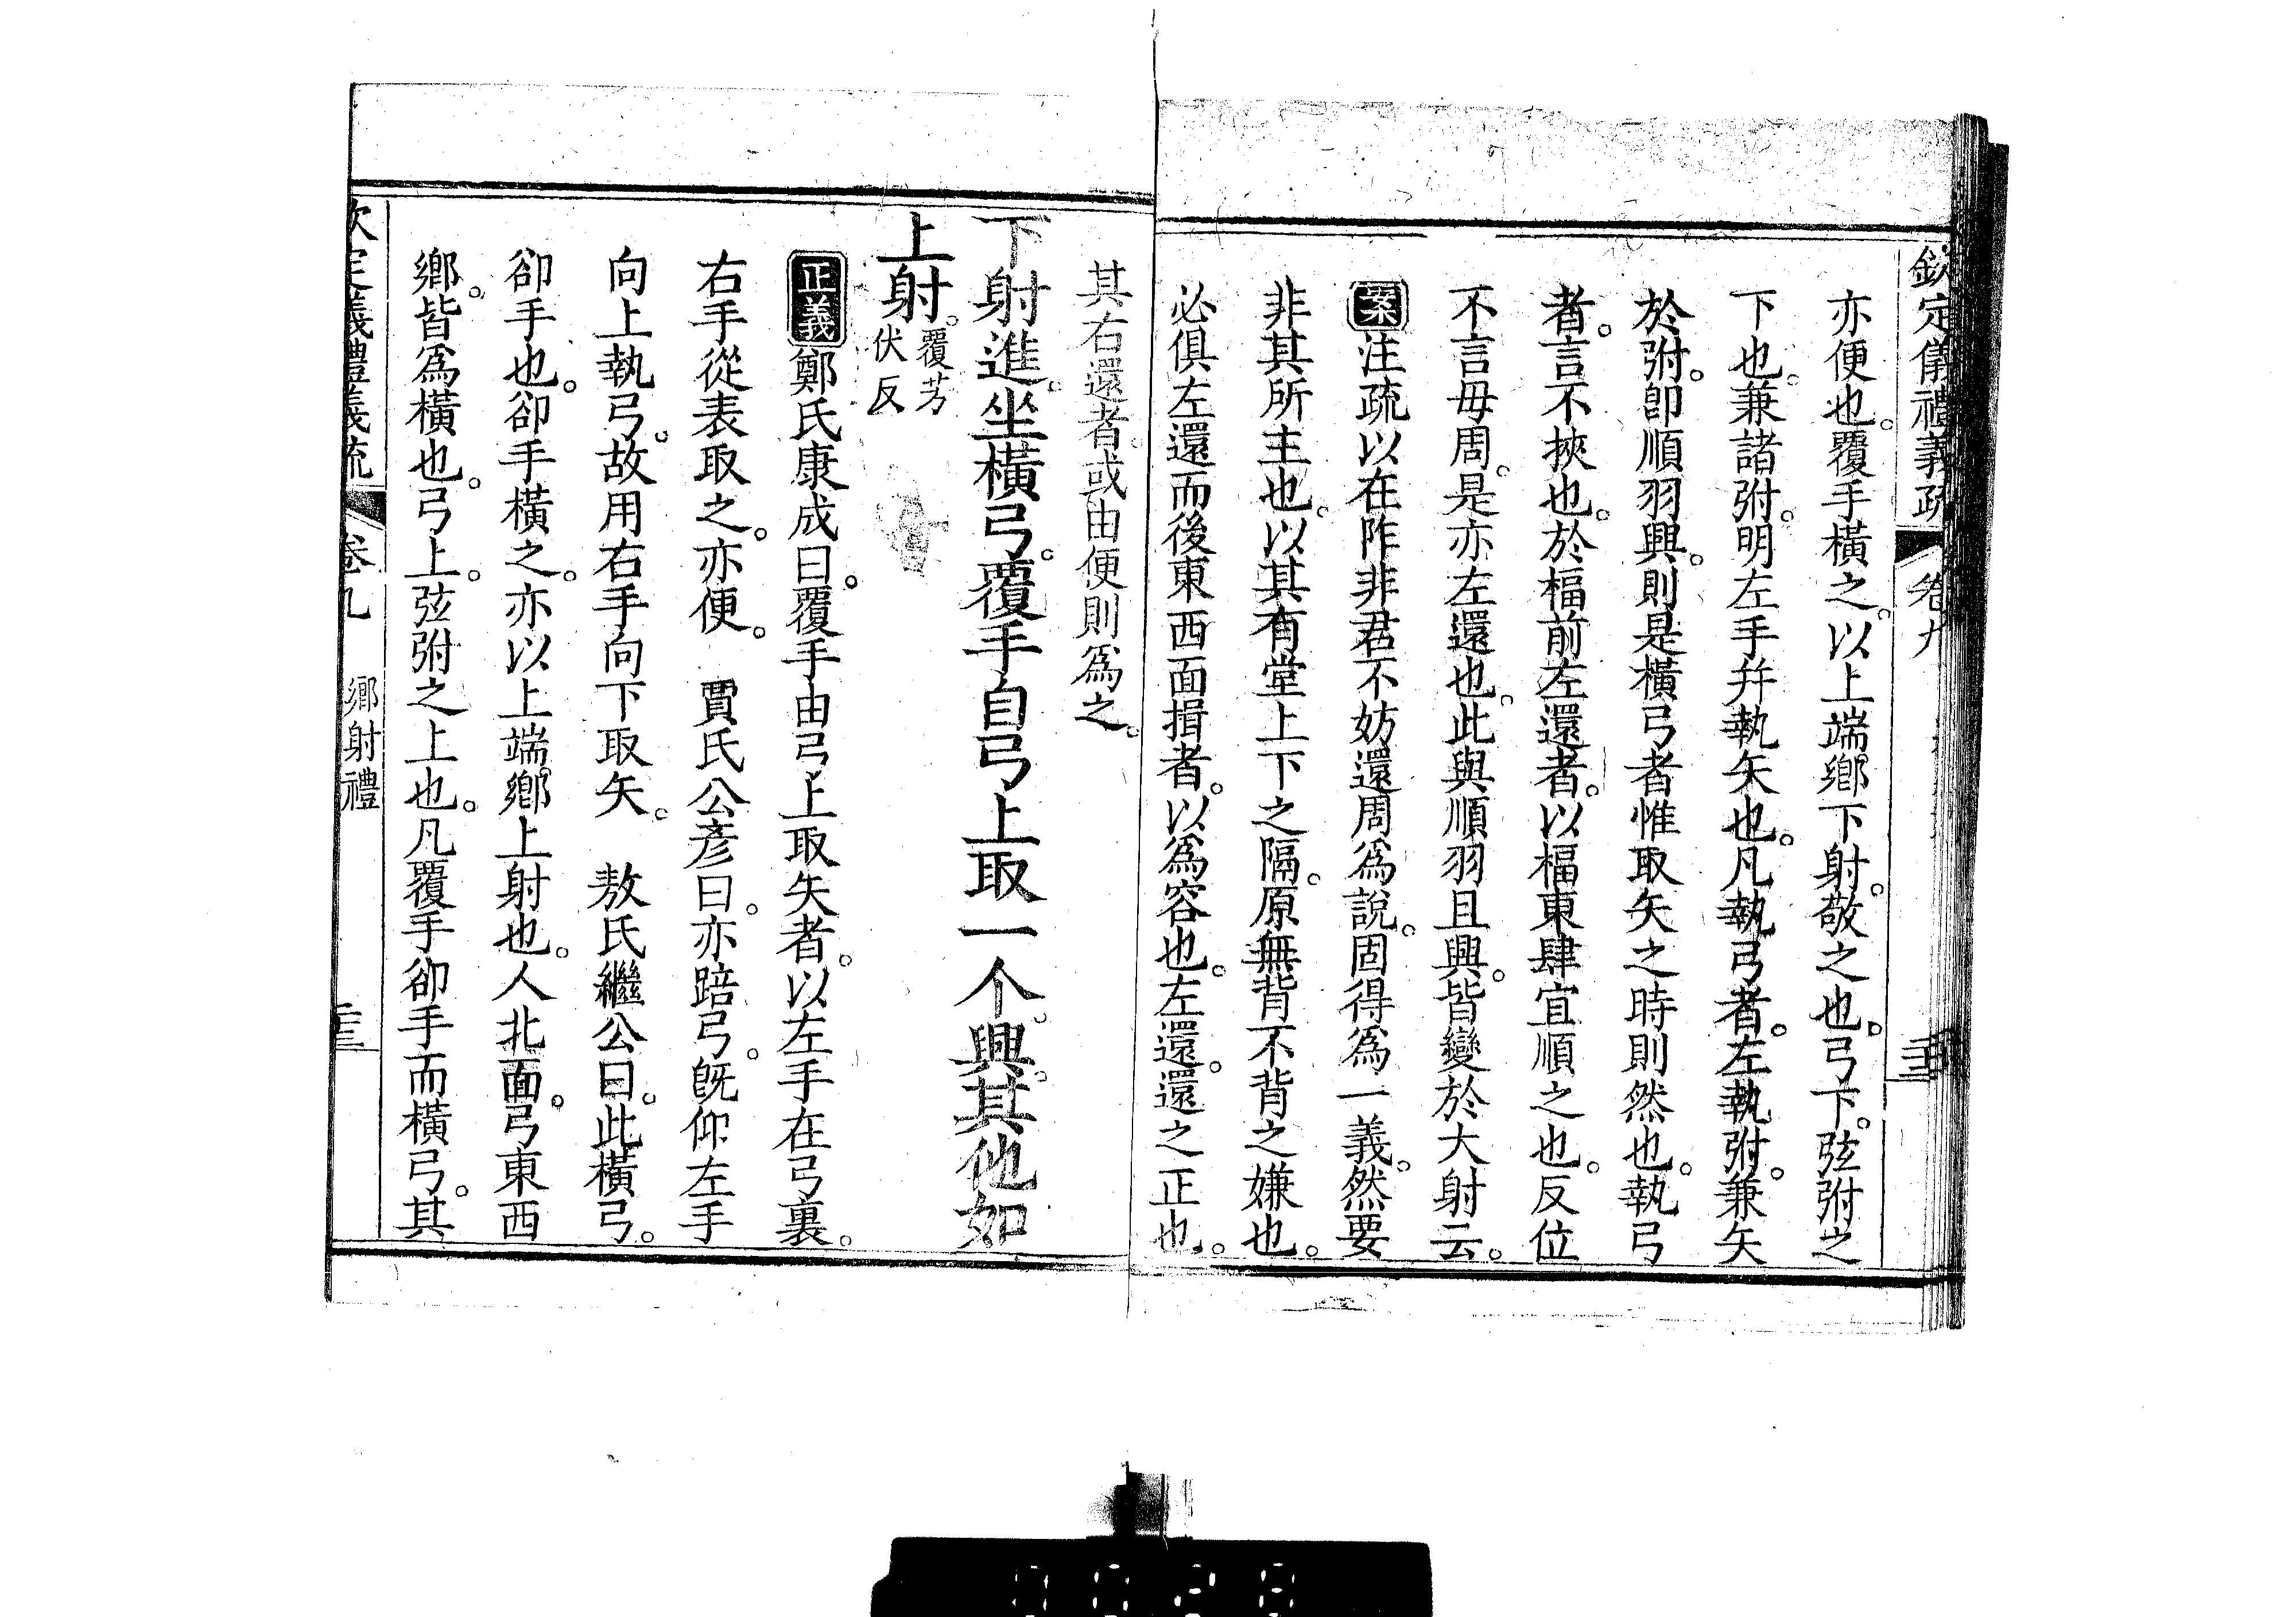 欽定儀禮義疏 卷九
亦便也。覆手橫之。以上端鄉下射。敬之也。弓下。弦弣之
下也。兼諸弣。明左手幷執矢也。凡執弓者。左執弣。兼矢
於弣。卽順羽興。則是橫弓者惟取矢之時則然也。執弓
者。言不挾也。於楅前左還者。以楅東肆宜順之也。反位
不言毋周。是亦左還也。此與順羽且興。皆變於大射云。
案注疏以在阼非君不妨還周爲說。固得爲一義。然要
非其所主也。以其有堂上下之隔。原無背不背之嫌也。
必俱左還而後東西面揖者。以爲容也。左還。還之正也。
其右還者。或由便則爲之。
下射進。坐橫弓。覆手自弓上取一个。興。其他如
上射。覆芳伏反
正義鄭氏康成曰。覆手由弓上取矢者。以左手在弓裏。
右手從表取之。亦便。 賈氏公彥曰。亦踣弓。旣仰左手
向上執弓。故用右手向下取矢。 敖氏繼公曰。此橫弓。
卻手也。卻手橫之。亦以上端鄉上射也。人北面。弓東西
鄉。皆爲橫也。弓上。弦弣之上也。凡覆手卻手而橫弓。其
欽定儀禮義疏 卷九 鄉射禮